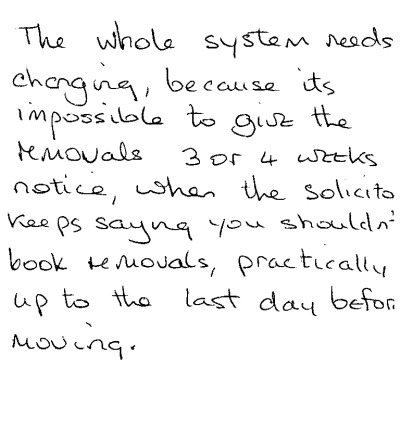 The whole system needs
changing, because its
impossible to give the
removals 3 or 4 weeks
notice, when the solicito
keeps saying you shouldn'
book removals, practically
up to the last day befor
moving.